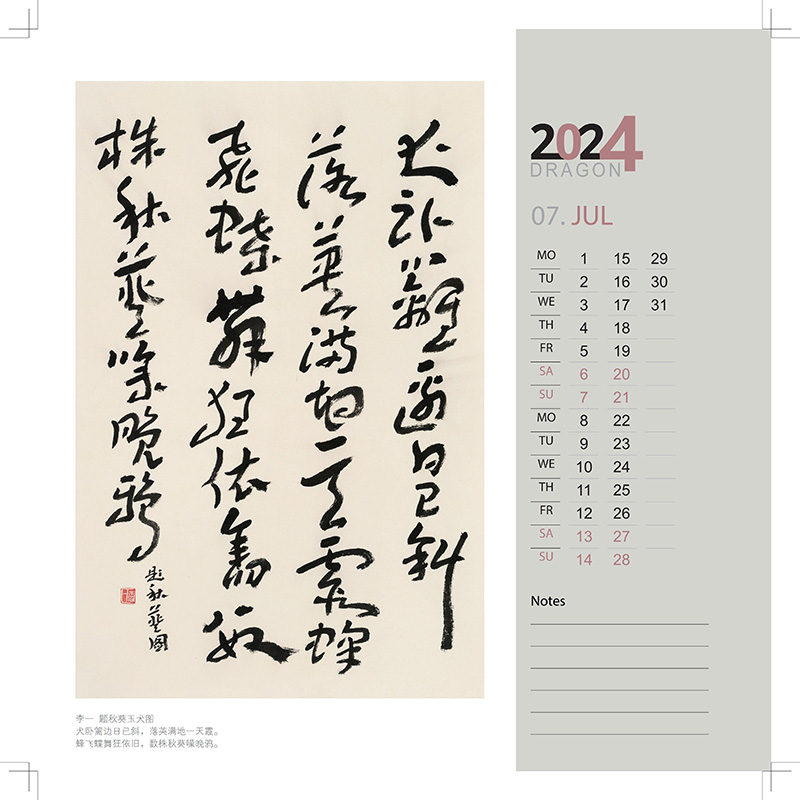 犬卧籬邊日已斜
落英满地一天霞蜂
飛蝶舞狂依舊數
株秋葵噪晚鴉
題秋葵圖
李一 题秋葵玉犬图
犬卧篱边日已斜，落英满地一天霞。
蜂飞蝶舞狂依旧，数株秋葵噪晚鸦。
2024
DRAGON
07. JUL
MO 1 15 29
TU 2 16 30
WE 3 17 31
TH 4 18
FR 5 19
SA 6 20
SU 7 21
MO 8 22
TU 9 23
WE 10 24
TH 11 25
FR 12 26
SA 13 27
SU 14 28
Notes